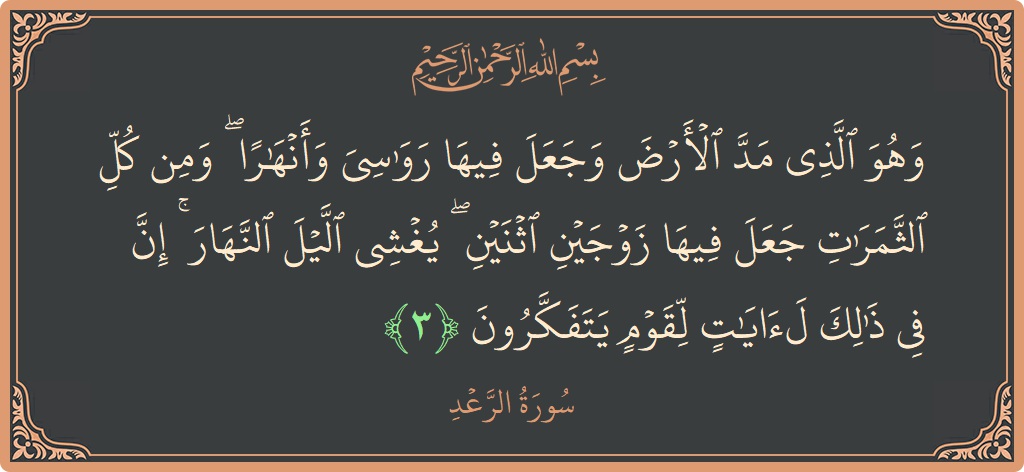 بِسْمِ اللَّهِ الرَّحْمَٰنِ الرَّحِيمِ
وَهُوَ ٱلَّذِى مَدَّ ٱلْأَرْضَ وَجَعَلَ فِيهَا رَوَٰسِىَ وَأَنْهَٰرًا ۖ وَمِن كُلِّ
ٱلثَّمَرَٰتِ جَعَلَ فِيهَا زَوْجَيْنِ ٱثْنَيْنِ ۖ يُغْشِى ٱلَّيْلَ ٱلنَّهَارَ ۚ إِنَّ
فِى ذَٰلِكَ لَءَايَٰتٍ لِّقَوْمٍ يَتَفَكَّرُونَ ﴿٣﴾
سُورَةُ الرَّعْدِ